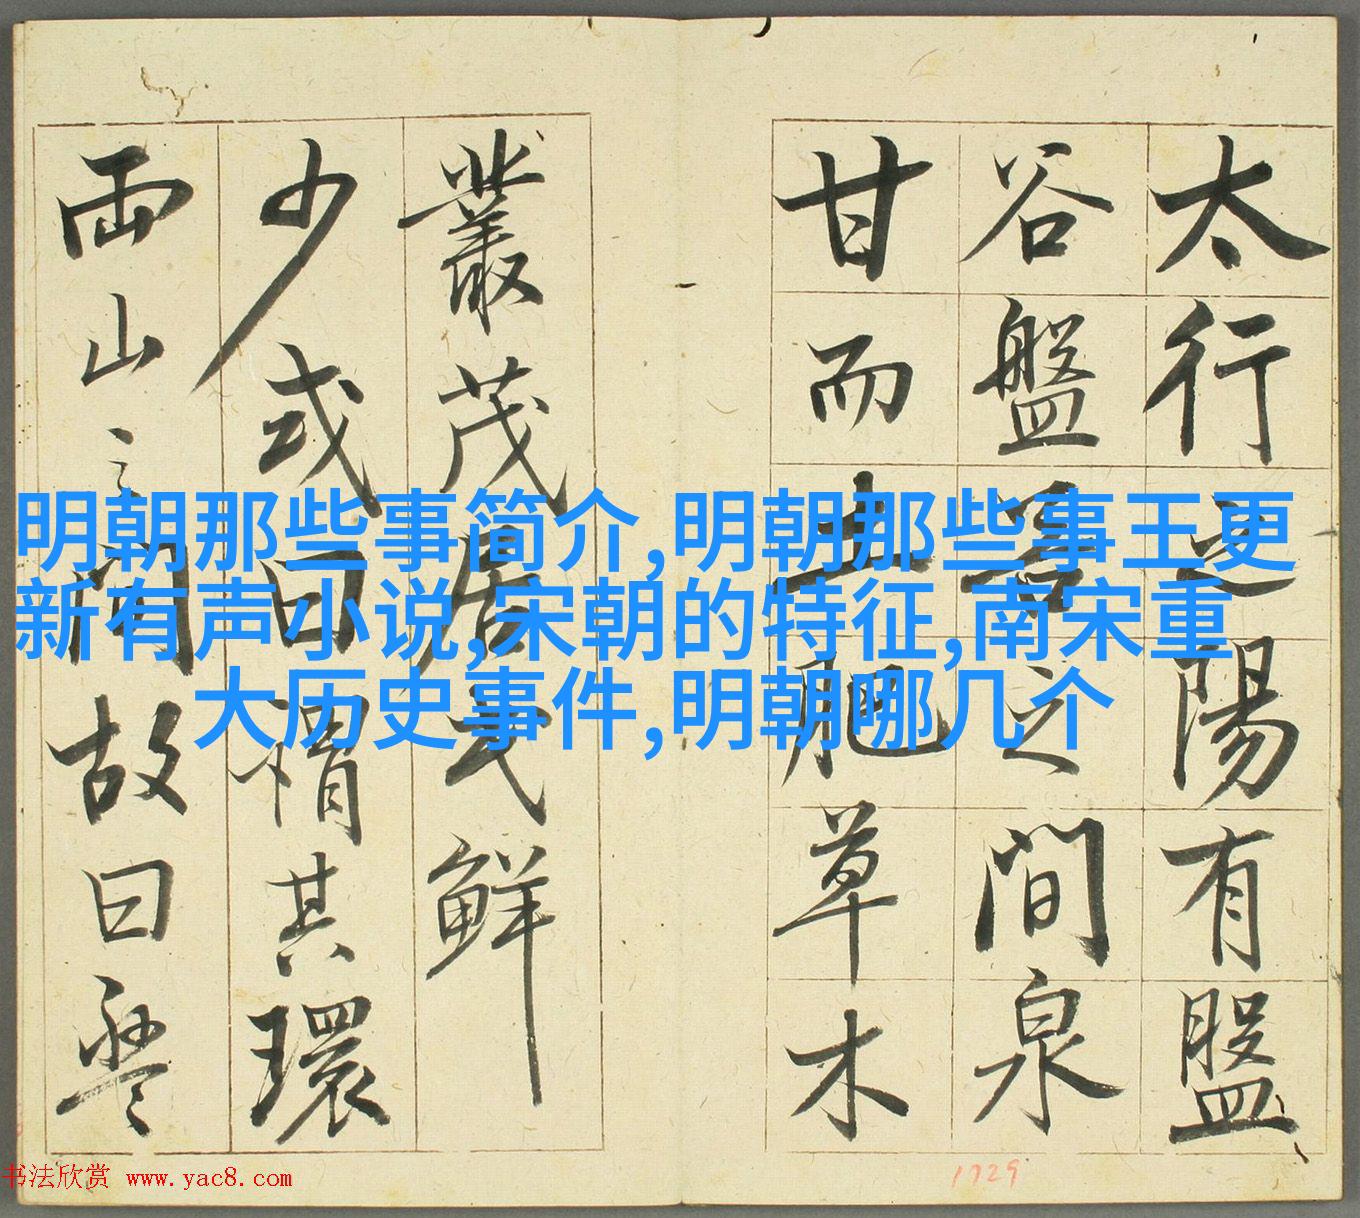 太行之陽有盤
谷盤谷之間泉
甘而土肥草木
叢茂居民鮮
少或曰謂其環
兩山之間故曰盤
明朝那些事简介,明朝那些事王更
新有声小说,宋朝的特征,南宋重
大历史事件,明朝哪几个
书法欣赏 www.yac8.com
1729